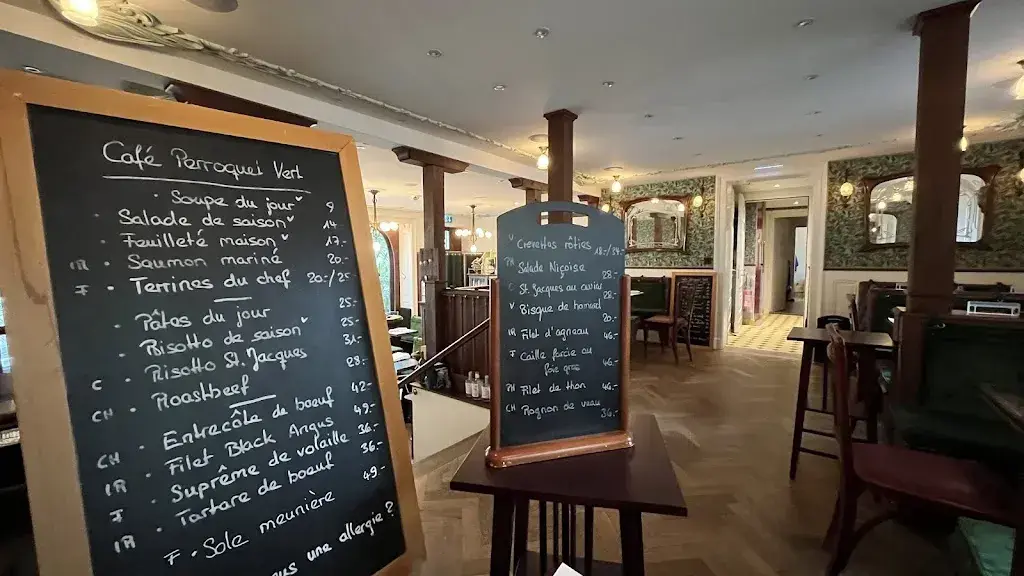 Café Perroquet Vert
Soupe du jour ᵛ 9
· Salade de saison ᵛ 14
· Feuilleté maison ᵛ 17.-
IR · Saumon mariné 20.-
F · Terrines du chef 20.-/25.-
· Pâtes du jour 25.-
· Risotto de saison ᵛ 25.-
C · Risotto St. Jacques 31.-
CH · Roastbeef 28.-
CH · Entrecôte de boeuf 42.-
IR · Filet Black Angus 49.-
F · Suprême de volaille 36.-
IR · Tartare de boeuf 36.-
F · Sole meunière 49.-
une allergie ?
V Crevettes rôties 18.-/34.-
PH Salade Niçoise 28.-
C St Jacques au caviar 28.-
V Bisque de homard 20.-
IR Filet d'agneau 46.-
F Caille farcie au
foie gras 46.-
PH Filet de thon 46.-
CH Rognon de veau 36.-